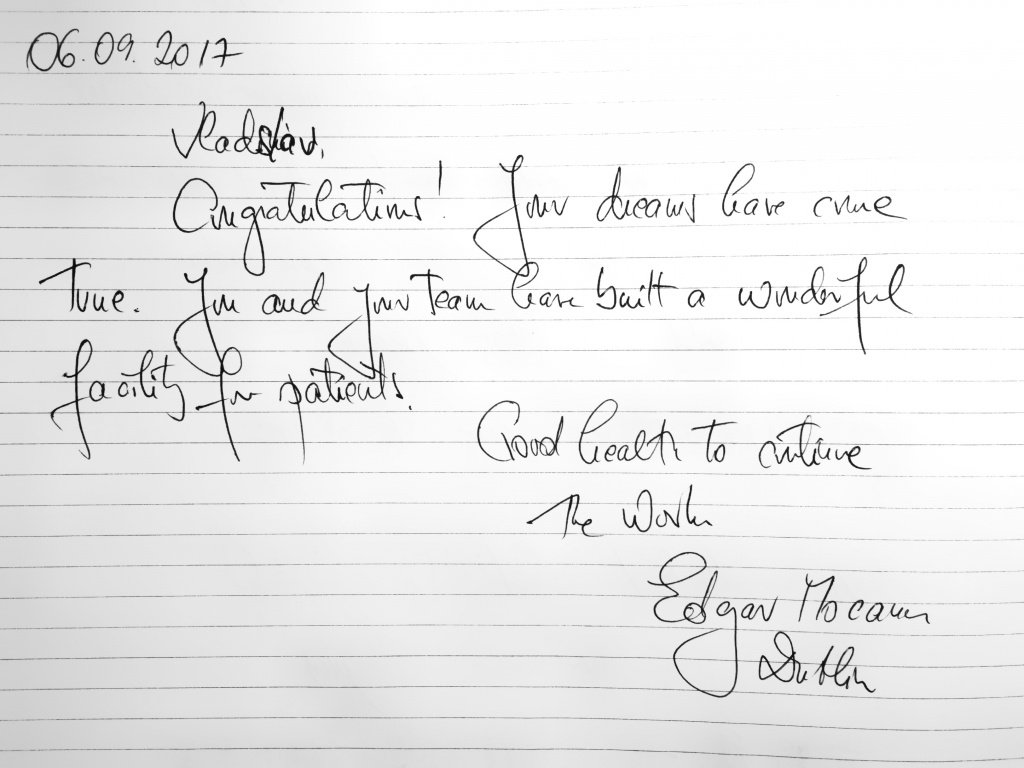 06.09.2017
Vladislav,
Congratulations! Your dreams have come
true. You and your team have built a wonderful
facility for patients.
Good health to continue
the work
Edgar Mocanu
Dublin